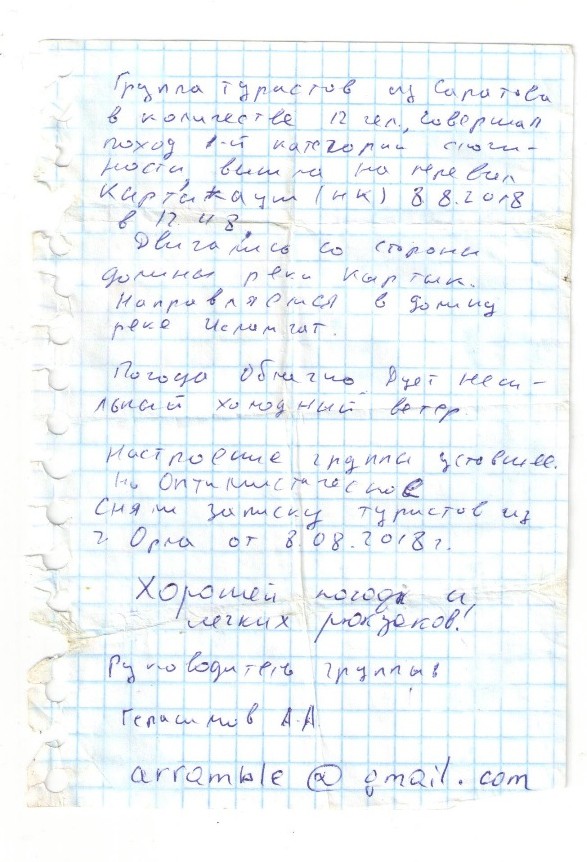 Группа туристов из Саратова
в количестве 12 чел., совершая
поход 1-й категории сложн-
ности, вышла на перевал
(НК) 8.8.2018
в 12 48.
Двигались со стороны
долины реки Кыртык.
Направляемся в долину
реке Исламчат.
Погода Облачно. Дует неси-
льный холодный ветер.
Настроение группы уставшее.
Но Оптимистическое
Сняли записку туристов из
г Орла от 8.08.2018г.
Хорошей погоды и
легких рюкзаков!
Руководитель группы
Герасимов А.А.
arramble@gmail.com